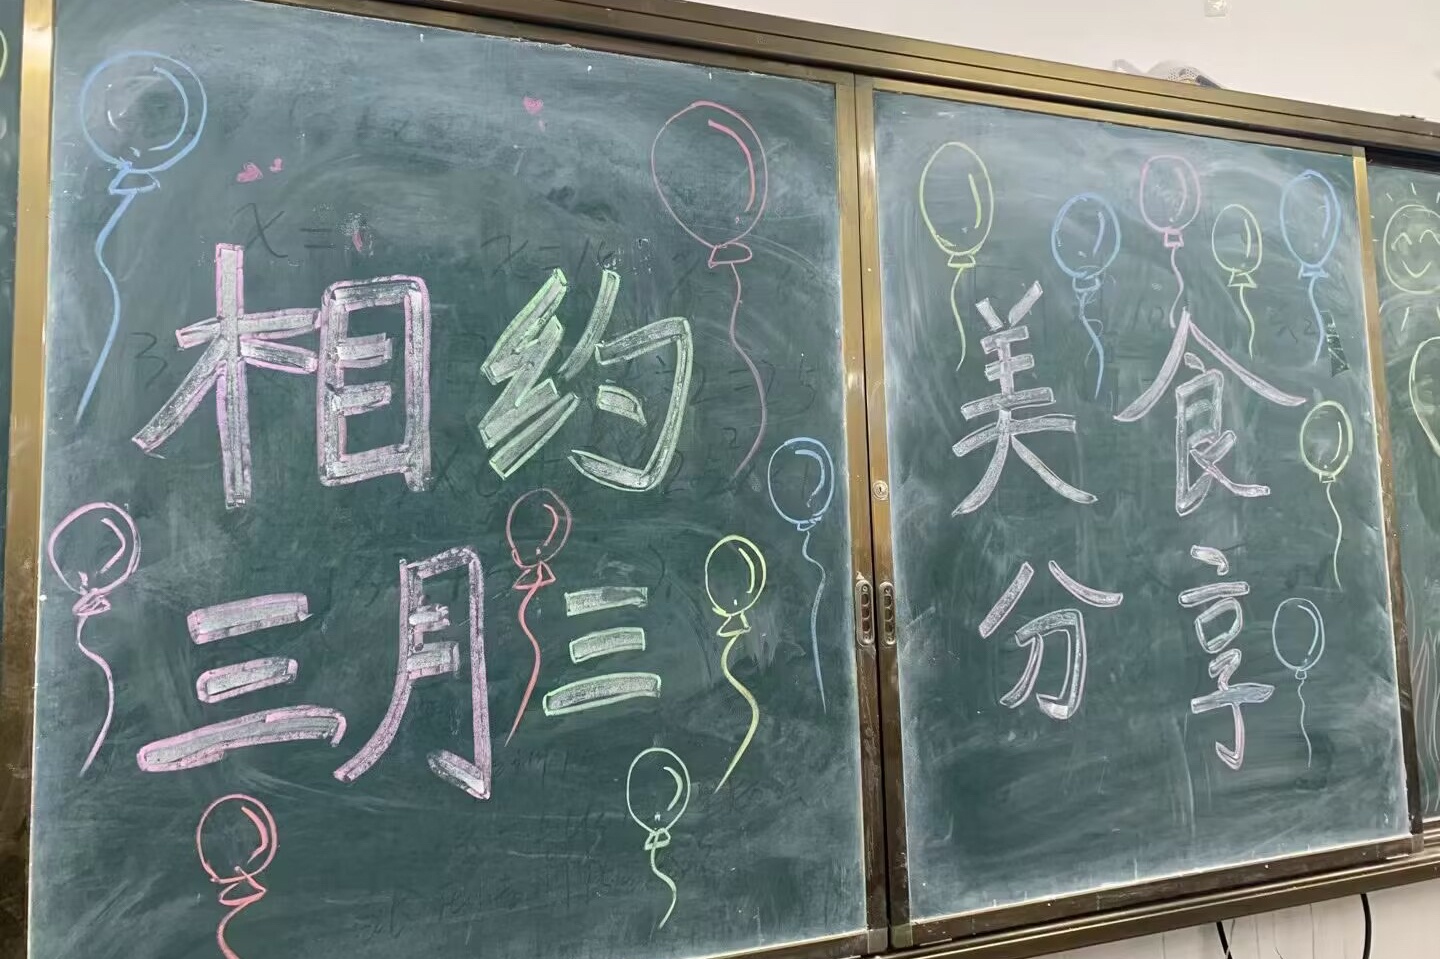 相约
三月三
美食
分享